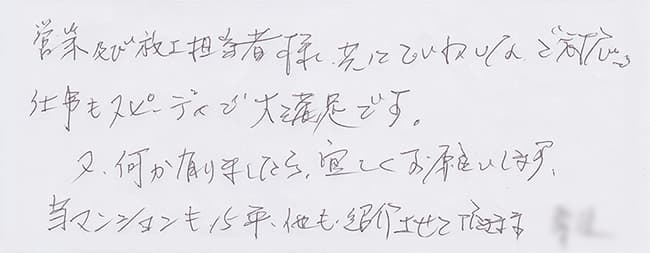 営業及び施工担当者様、共にていねいなご対応で
仕事もスピーディで大満足です。
又、何か有りましたら、宜しくお願いします。
当マンションも15年、他も紹介させて頂きます